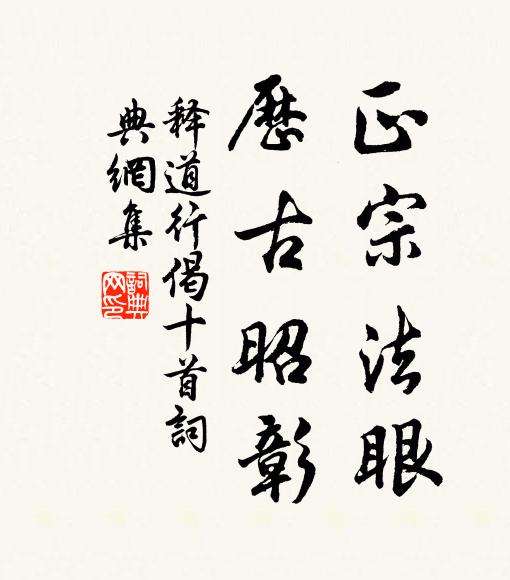 正宗法眼
歷古昭彰
释道行偈十首詞
典網集
詞典
网印